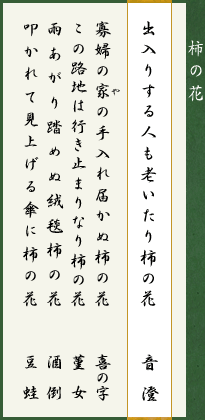 柿の花
出入りする人も老いたり柿の花 音澄
寡婦の家の手入れ届かぬ柿の花 喜の字
や
この路地は行き止まりなり柿の花 菫女
雨あがり踏めぬ絨毯柿の花 酒倒
叩かれて見上げる傘に柿の花 豆蛙